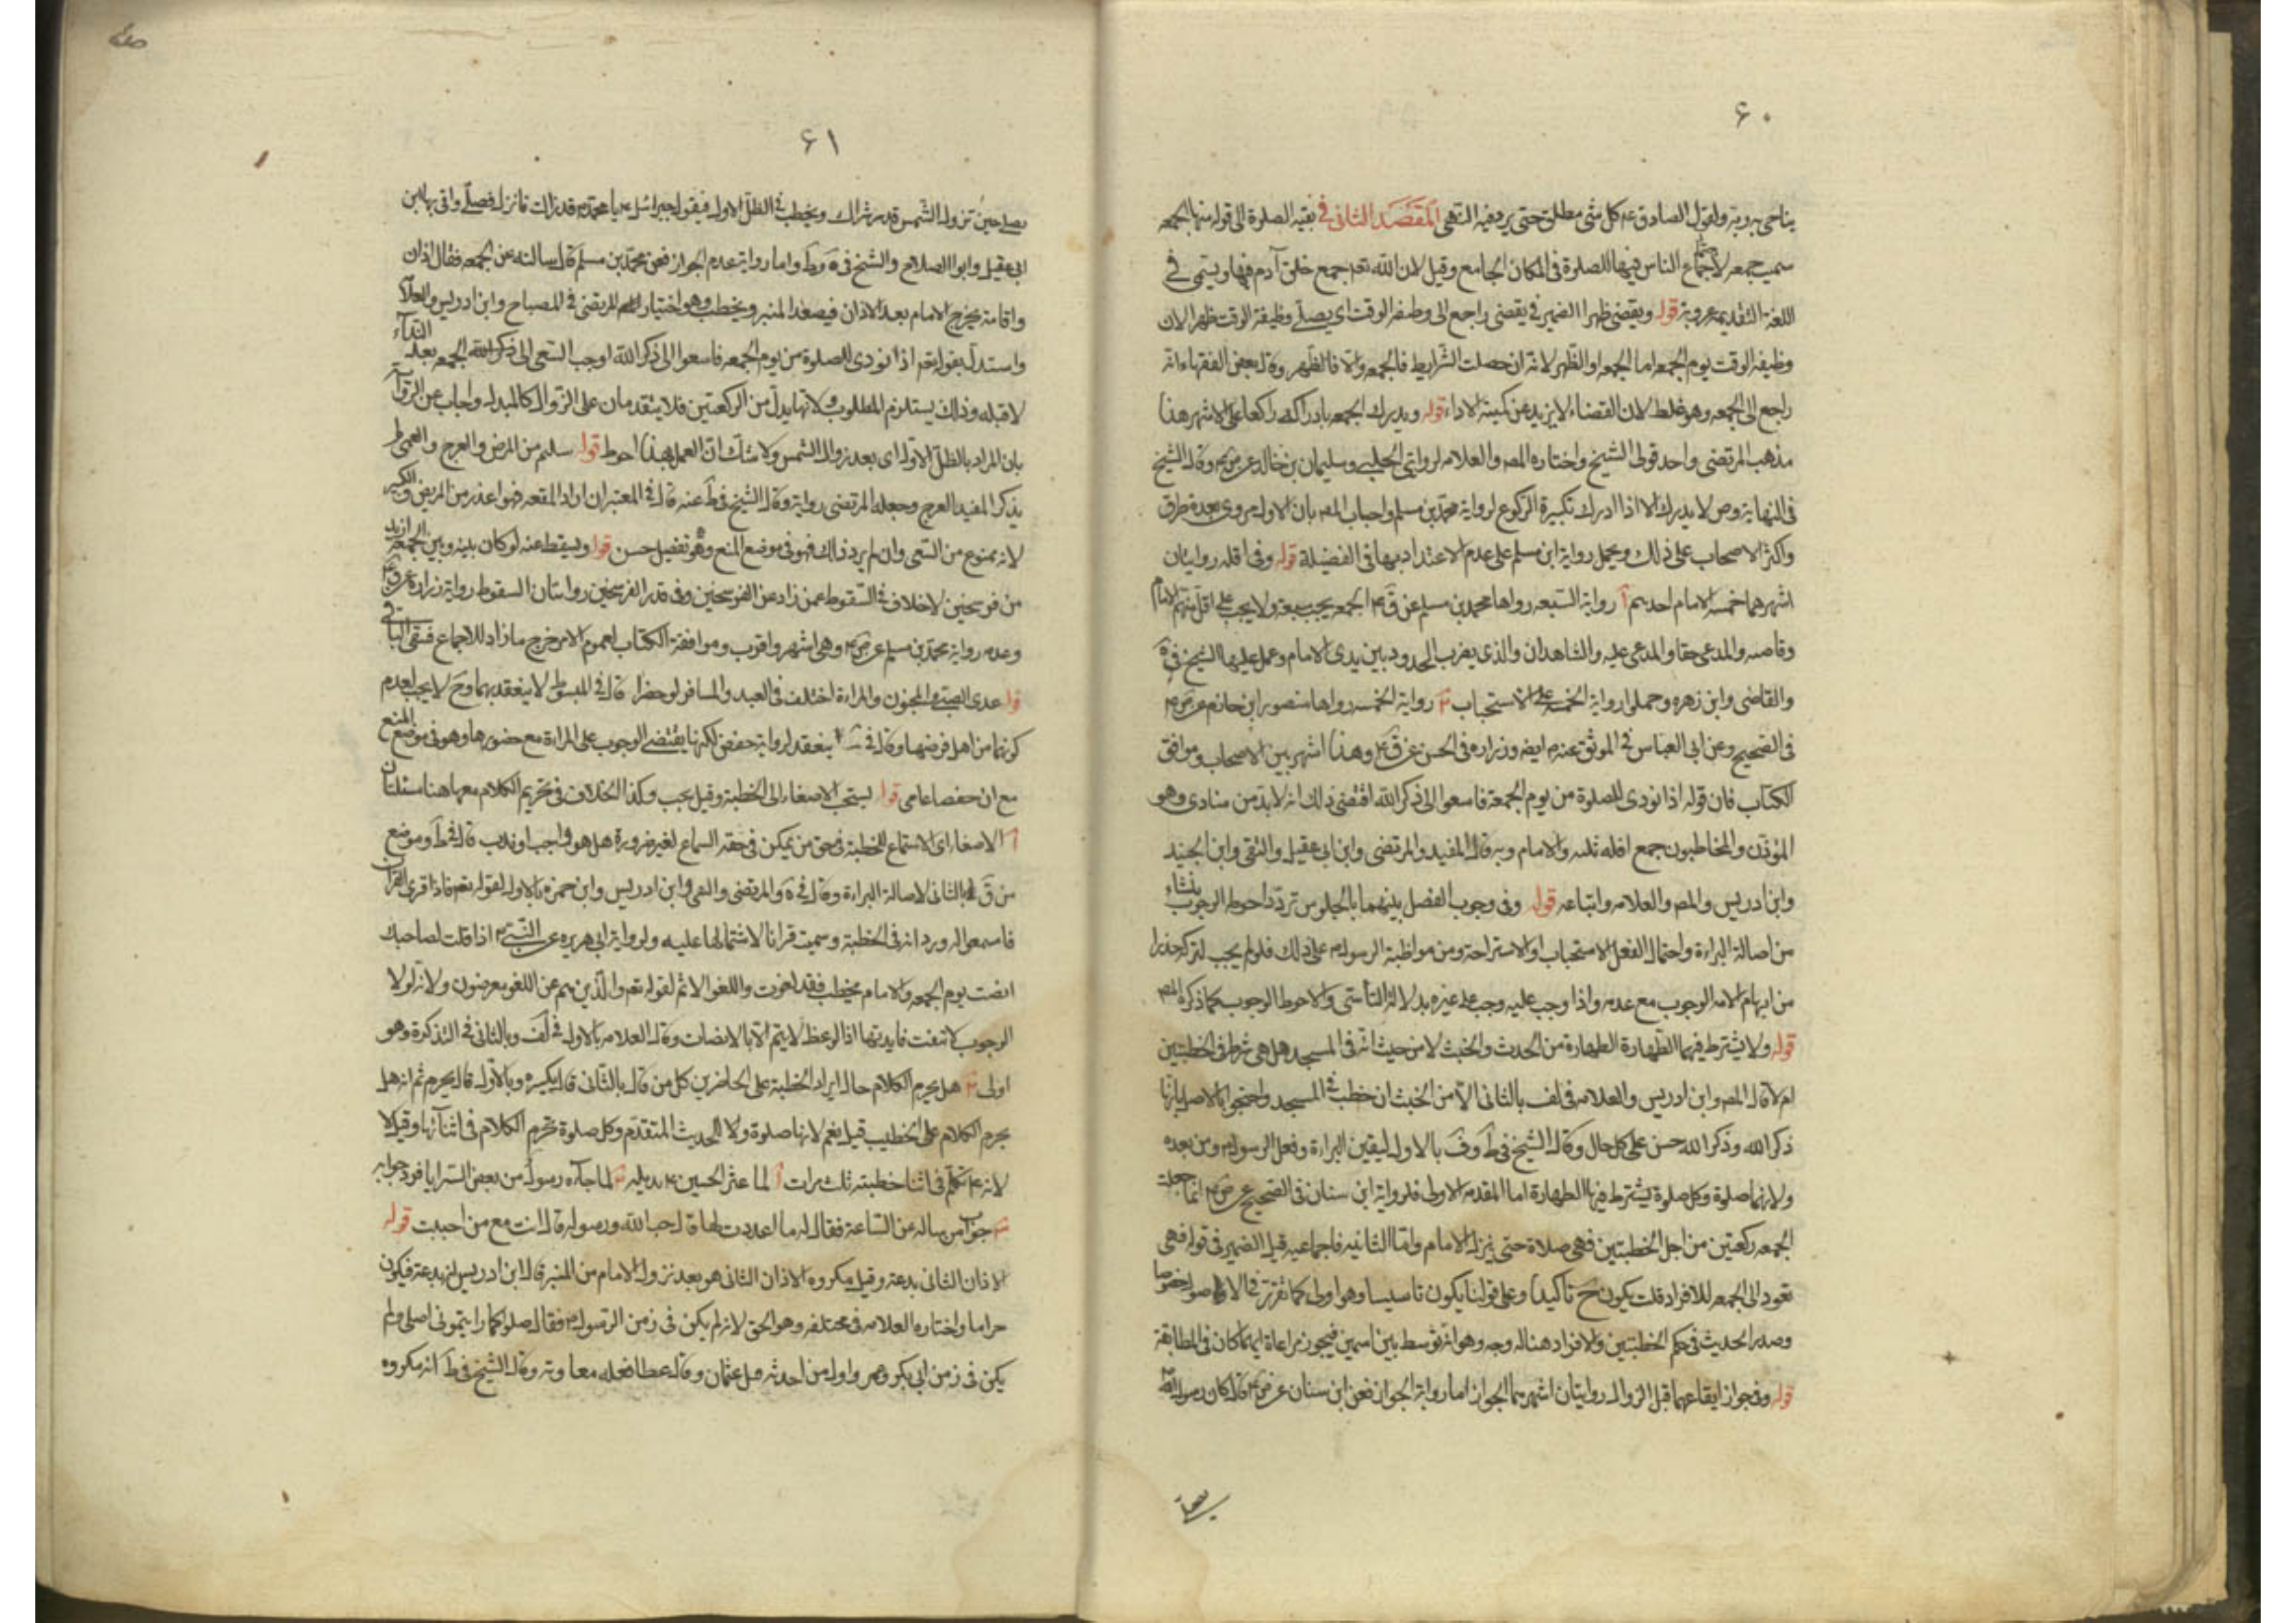 ۶۰
يناجى به ربه ولقول الصادق ع كل شى مطلق حتى يرد فيه النهى المقصد الثانى فى بقية الصلوة الى قوله منها الجمعه
سميت جمعه لاجتماع الناس فيها للصلوة فى المكان الجامع وقيل لان الله تعه جمع خلق آدم فيها ويسمى فى
اللغة القديمة عروبة قوله ويقضى ظهرا الضمير فى يقضى راجع الى وظيفه الوقت اى يصلى وظيفة الوقت ظهرا لان
وظيفه الوقت يوم الجمعه اما الجمعه او الظهر لانه ان حصلت الشرايط فالجمعه والا فالظهر وقال بعض الفقهاء انه
راجع الى الجمعه وهو غلط لان القضاء لا يزيد عن كمية الاداء قوله ويدرك الجمعه بادراكه راكعا على الاشهر هذا
مذهب المرتضى واحد قولى الشيخ واختاره المصه والعلامه لروايتى الحلبى وسليمان بن خالد عن ص ع وقال الشيخ
فى النهاية وص لا يدرك الا اذا ادرك تكبيرة الركوع لرواية محمد بن مسلم واجاب المصه بان الاول مروى بعدة طرق
واكثر الاصحاب على ذلك ويحمل رواية ابن مسلم على عدم الاعتداد بها فى الفضيلة قوله وفى اقله روايتان
اشهرهما خمسه الامام احدهم آ رواية السبعه رواها محمد بن مسلم عن ق ع الجمعه يجب سبعة ولا يجب على اقل منهم الامام
وقاضيه والمدعى حقا والمدعى عليه والشاهدان والذى يضرب الحدود بين يدى الامام وعمل عليها الشيخ فى يه
والقاضى وابن زهره وحملوا رواية الخمسه على الاستحباب ب رواية الخمسه رواها منصور ابن حازم عن ص ع
فى الصحيح وعن ابى العباس فى الموثق عنه ع ايضه وزراره فى الحسن عن ق ع وهذا اشهر بين الاصحاب وموافق
الكتاب فان قوله اذا نودى للصلوة من يوم الجمعة فاسعوا الى ذكر الله اقتضى ذلك انه لابد من منادى وهو
المؤذن والمخاطبون جمع اقله ثلثه والامام وبه قال المفيد والمرتضى وابن ابى عقيل والتقى وابن الجنيد
وابن ادريس والمصه والعلامه واتباعه قوله وفى وجوب الفصل بينهما بالجلوس تردد احوطه الوجوب ينشاء
من اصالة البراءة واحتمال الفعل الاستحباب او الاستراحة ومن مواظبة الرسول ص على ذلك فلو لم يجب لتركه حذرا
من ايهام الامه الوجوب مع عدمه واذا وجب عليه وجب على غيره بدلالة التأسى والاحوط الوجوب كما ذكره المصه
قوله ولا يشترط فيهما الطهارة الطهارة من الحدث والخبث لا من حيث انه فى المسجد هل هى شرط فى الخطبتين
ام لا قال المصه وابن ادريس والعلامه فى لف بالثانى الا من الخبث ان خطب فى المسجد واحتجوا بالاصل بانها
ذكر الله وذكر الله حسن على كل حال وقال الشيخ فى ط وف بالاول ليقين البراءة وفعل الرسول ص ومن بعده
ولانهما صلوة وكل صلوة يشترط فيها الطهارة اما المقدمه الاولى فلرواية ابن سنان فى الصحيح عن ص ع انما جعلت
الجمعه ركعتين من اجل الخطبتين فهى صلاة حتى ينزل الامام واما الثانيه فاجماعيه قيل الضمير فى قوله فهى
تعود الى الجمعه للافراد قلت يكون ح تاكيدا وعلى قولنا يكون تاسيسا وهو اولى كما تقرر فى الاصول خصوصا
وصدر الحديث فى حكم الخطبتين والافراد هنا له وجه وهو انه توسط بين اسمين فيجوز مراعاة ايهما كان فى المطابقة
قوله وفى جواز ايقاعهما قبل الزوال روايتان اشهرهما الجواز اما رواية الجواز فعن ابن سنان عن ص ع قال كان رسول الله ص
۶۱
يصلى حين تزول الشمس قدر شراك ويخطب فى الظل الاول فيقول جبرائيل ع يا محمد ص قد زالت فانزل فصلى وافتى بها ابن
ابى عقيل وابو الصلاح والشيخ فى يه وط واما رواية عدم الجواز فعن محمد بن مسلم قال سالته عن الجمعه فقال اذان
واقامة يخرج الامام بعد الاذان فيصعد المنبر ويخطب وهو اختيار المرتضى فى المصباح وابن ادريس والعلا
واستدل بقوله تعه اذا نودى للصلوة من يوم الجمعه فاسعوا الى ذكر الله اوجب السعى الى ذكر الله الجمعه بعد النداء
لا قبله وذلك يستلزم المطلوب ولانها بدل من الركعتين فلا يتقدمان على الزوال كالمبدل واجاب عن الرواية
بان المراد بالظل الاول اى بعد زوال الشمس ولا شك ان العمل بهذا احوط قوله سليم من المرض والعرج والعمى لم
يذكر المفيد العرج وجعله المرتضى رواية وقال الشيخ فى ط عنه قال فى المعتبر ان اراد المقعد فهو اعذر من المريض والكبير
لانه ممنوع من السعى وان لم يرد ذلك فهو فى موضع المنع وهو تفصيل حسن قوله ويسقط عنه لو كان بينه وبين الجمعه ازيد
من فرسخين لا خلاف فى السقوط عمن زاد عن الفرسخين وفى قدر الفرسخين روايتان السقوط رواية زراره عن ق ع
وعدمه رواية محمد بن مسلم عن ص ع وهى اشهر واقرب وموافقة الكتاب لعموم الامر خرج ما زاد للاجماع فبقى الباقى
قوله عدى الصبى والمجنون والمراءة اختلف فى العبد والمسافر لو حضرا قال فى المبسوط لا ينعقد بهما وح لا يجب لعدم
كونهما من اهل فرضها وقال فى ينعقد لرواية حفص لكنها يقتضى الوجوب على المراءة مع حضورها وهو فى موضع المنع
مع ان حفصا عامى قوله يستحب الاصغاء الى الخطبة وقيل يجب وكذا الخلاف فى تحريم الكلام معها هنا مسئلتان
آ الاصغا اى الاستماع للخطبة فى حق من يمكن فى حقه السماع لغير ضرورة هل هو واجب او ندب قال فى ط وموضع
من ف بالثانى لاصالة البراءة وقال فى يه والمرتضى والتقى وابن ادريس وابن حمزه بالاول لقوله تعه فاذا قرى القرآن
فاسمعوا له ورد انه فى الخطبة وسميت قرانا لاشتمالها عليه ولرواية ابى هريره عن النبى ص اذا قلت لصاحبك
انصت يوم الجمعه والامام يخطب فقد لغوت واللغو الاثم لقوله تعه والذين هم عن اللغو معرضون ولانه لولا
الوجوب لانتفت فايدتها اذ الوعظ لا يتم الا بالانصات وقال العلامه بالاول فى لف وبالثانى فى التذكرة وهو
اولى ب هل يحرم الكلام حال ايراد الخطبة على الحاضرين كل من قال بالثانى قال يكره وبالاول قال يحرم ثم انه هل
يحرم الكلام على الخطيب قيل نعم لانها صلوة ولا الحديث المتقدم وكل صلوة يحرم الكلام فى اثنائها وقيل لا
لانه ع تكلم فى اثنا خطبته ثلث مرات آ لما عثر الحسين ع بذيله ب لما جاءه رسول من بعض السرايا فرد جوابه
ج جواب من ساله عن الساعة فقال له ما اعددت لها قال حب الله ورسوله قال انت مع من احببت قوله
الاذان الثانى بدعة وقيل مكروه الاذان الثانى هو بعد نزول الامام من المنبر قال ابن ادريس انه بدعة فيكون
حراما واختاره العلامه فى مختلفه وهو الحق لانه لم يكن فى زمن الرسول ص فقال صلوا كما رايتمونى اصلى ولم
يكن فى زمن ابى بكر وعمر واول من احدثه قيل عثمان وقال عطا فعله معاوية وقال الشيخ فى ط انه مكروه